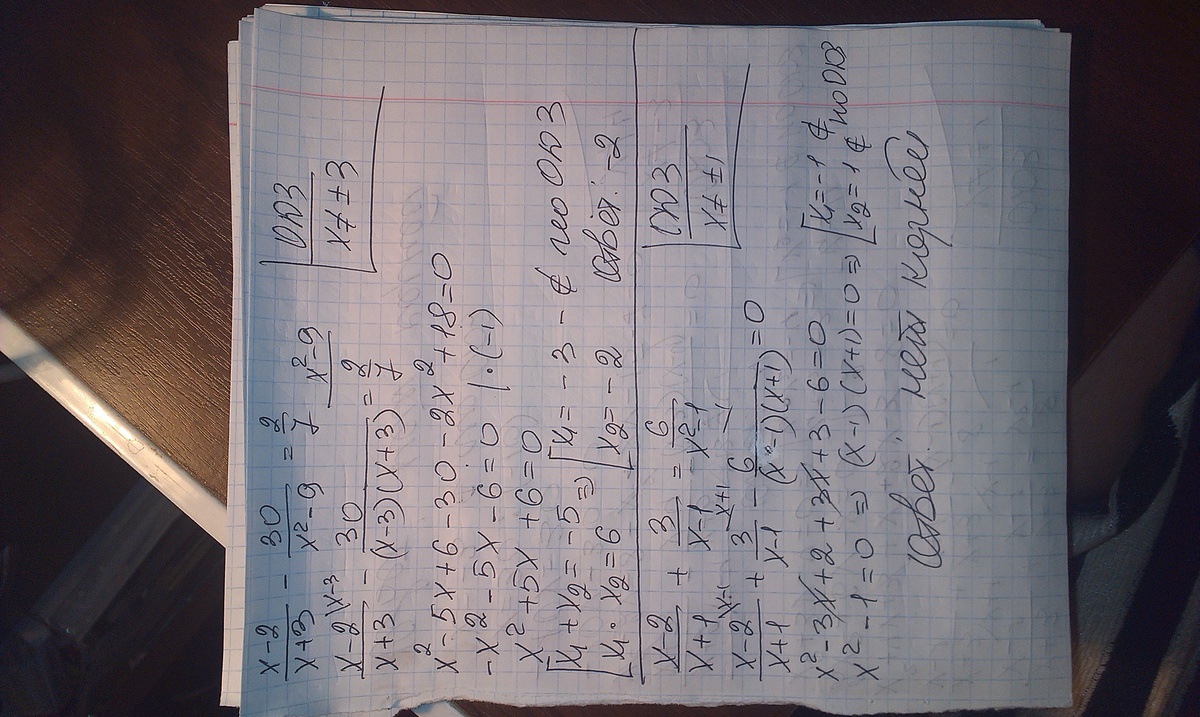 (x-2)/(x+3) - 30/(x²-9) = 2/7
ОДЗ
x ≠ ±3
(x-2)/(x+3) \x-3 - 30/((x-3)(x+3)) = 2/7 x²-9
x² - 5x + 6 - 30 - 2x² + 18 = 0
-x² - 5x - 6 = 0 | · (-1)
x² + 5x + 6 = 0
[x₁ + x₂ = -5 ⇒ [x₁ = -3 - ∉ по ОДЗ
[x₁ · x₂ = 6 [x₂ = -2 Ответ: -2
(x-2)/(x+1) + 3/(x-1) = 6/(x²-1)
ОДЗ
x ≠ ±1
(x-2)/(x+1) \x-1 + 3/(x-1) \x+1 - 6/((x-1)(x+1)) \1 = 0
x² - 3x + 2 + 3x + 3 - 6 = 0
x² - 1 = 0 ⇒ (x-1)(x+1) = 0 ⇒ [x₁ = -1 ∉
[x₂ = 1 ∉ по ОДЗ
Ответ: нет корней